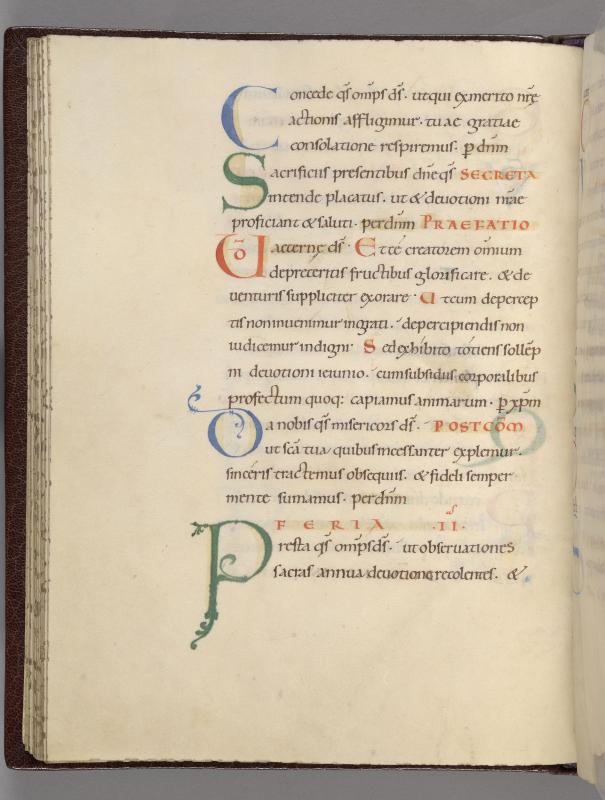 Concede qs omps ds. ut qui ex merito nrę
actionis affligimur. tuae gratiae
consolatione respiremus. p dnm
Sacrificiis presentibus dne qs SECRETA
intende placatus. ut & devotioni nrae
proficiant & saluti. per dnm PRAEFATIO
UD aeterne ds. Et te creatorem omnium
de preteritis fructibus glorificare. & de
venturis suppliciter exorare. Ut cum de percep
tis non invenimur ingrati. de percipiendis non
iudicemur indigni. Sed exhibito totiens sollēp
ni devotioni ieiunio. cum subsidiis corporalibus
profectum quoq: capiamus animarum. p xpm
Da nobis qs misericors ds. POSTCOM
ut scā tua quibus incessanter explemur.
sinceris tractemus obsequiis. & fideli semper
mente sumamus. per dnm
FERIA .II.
Presta qs omps ds. ut observationes
sacras annua devotione recolentes. &